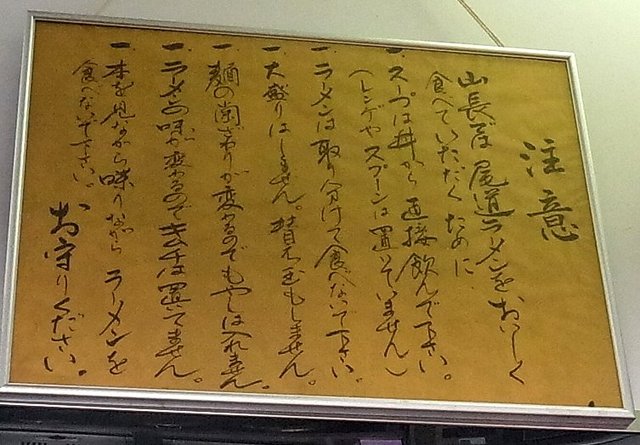 注意
山長では尾道ラーメンをおいしく
食べていただくために、
一 スープは丼から直接飲んで下さい。
（レンゲやスプーンは置いていません）
一 ラーメンは取り分けて食べないで下さい。
一 大盛りはしません。替え玉もしません。
一 麺の歯ざわりが変わるのでもやしは入れません。
一 ラーメンの味が変わるのでキムチは置いてません。
一 本を見ながら喋りながらラーメンを
食べないで下さい。
お守りください。